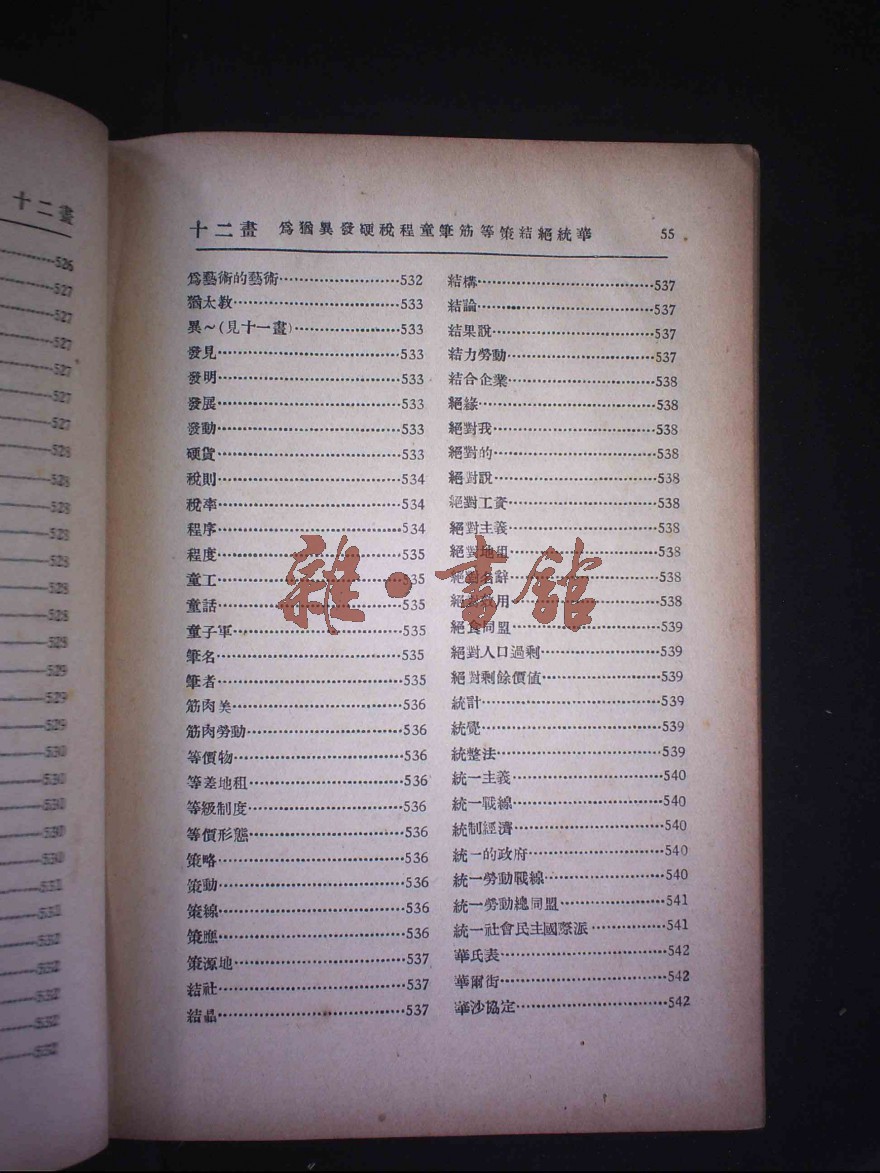 十二畫
526
527
527
527
527
527
527
528
528
528
528
528
528
528
528
529
529
529
530
530
530
530
530
531
532
532
532
532
532
532
十二畫 爲猶異發硬稅程童筆筋等策結絕統華 55
爲藝術的藝術……532
猶太教……533
異～(見十一畫)……533
發見……533
發明……533
發展……533
發動……533
硬貨……533
稅則……534
稅率……534
程序……534
程度……535
童工……535
童話……535
童子軍……535
筆名……535
筆者……535
筋肉美……536
筋肉勞動……536
等價物……536
等差地租……536
等級制度……536
等價形態……536
策略……536
策動……536
策線……536
策應……536
策源地……537
結社……537
結晶……537
結構……537
結論……537
結果說……537
結力勞動……537
結合企業……538
絕緣……538
絕對我……538
絕對的……538
絕對說……538
絕對工資……538
絕對主義……538
絕對地租……538
絕對名辭……538
絕對專用……538
絕食同盟……539
絕對人口過剩……539
絕對剩餘價值……539
統計……539
統覺……539
統整法……539
統一主義……540
統一戰線……540
統制經濟……540
統一的政府……540
統一勞動戰線……540
統一勞動總同盟……541
統一社會民主國際派……541
華氏表……542
華爾街……542
華沙協定……542
雜·書館